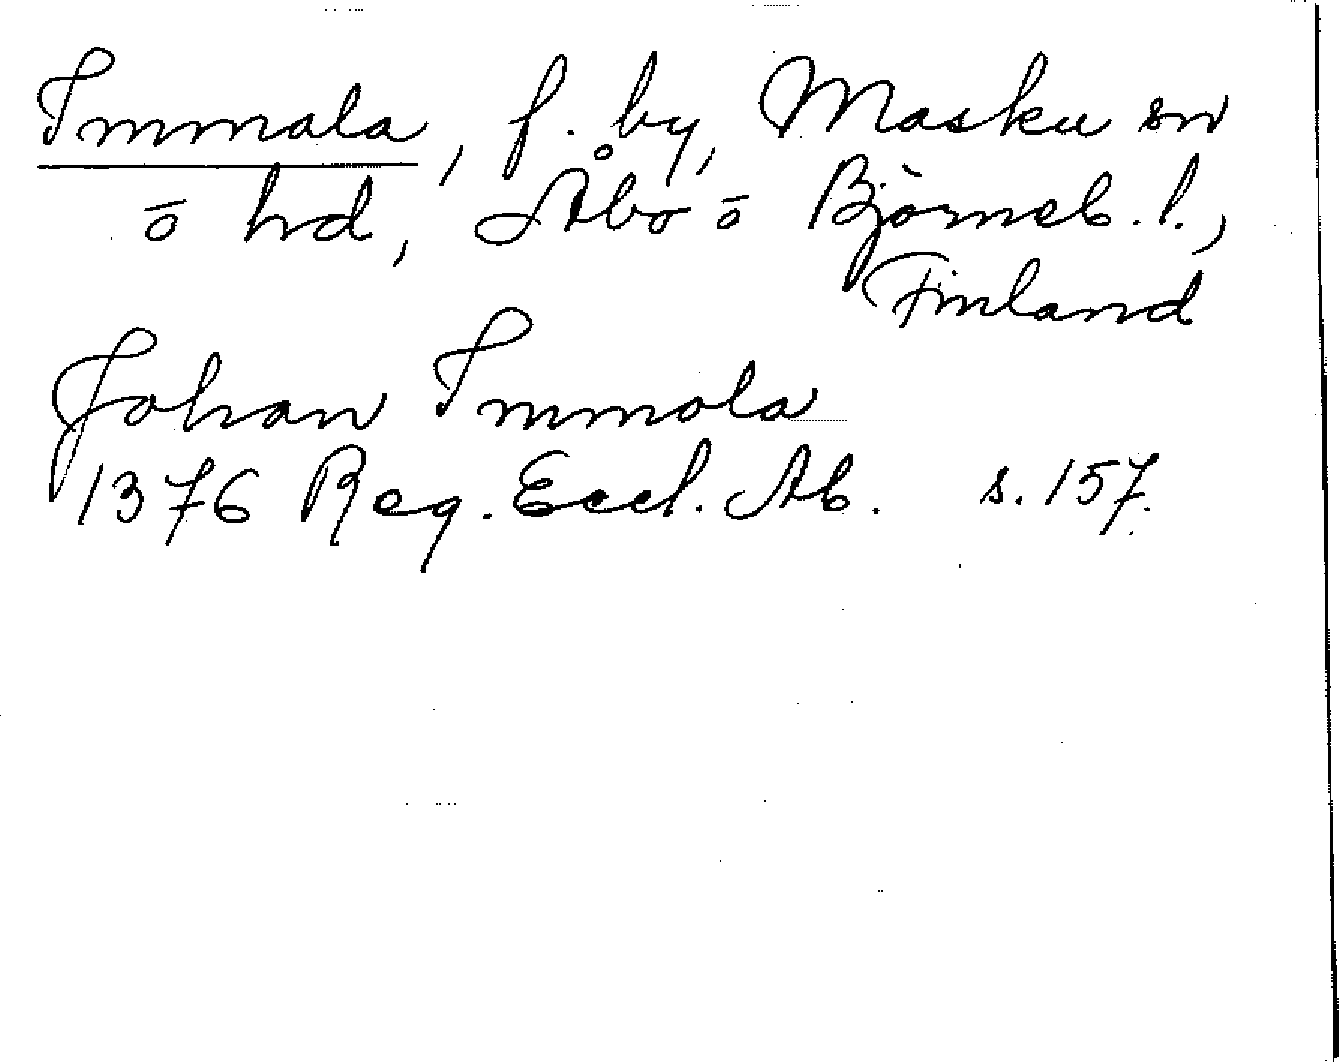 Immala, f. by, Masku sn
ō hd, Åbo ō Björneb. l.,
Finland
Johan Immola
1376 Reg. Eccl. Ab. s. 157.